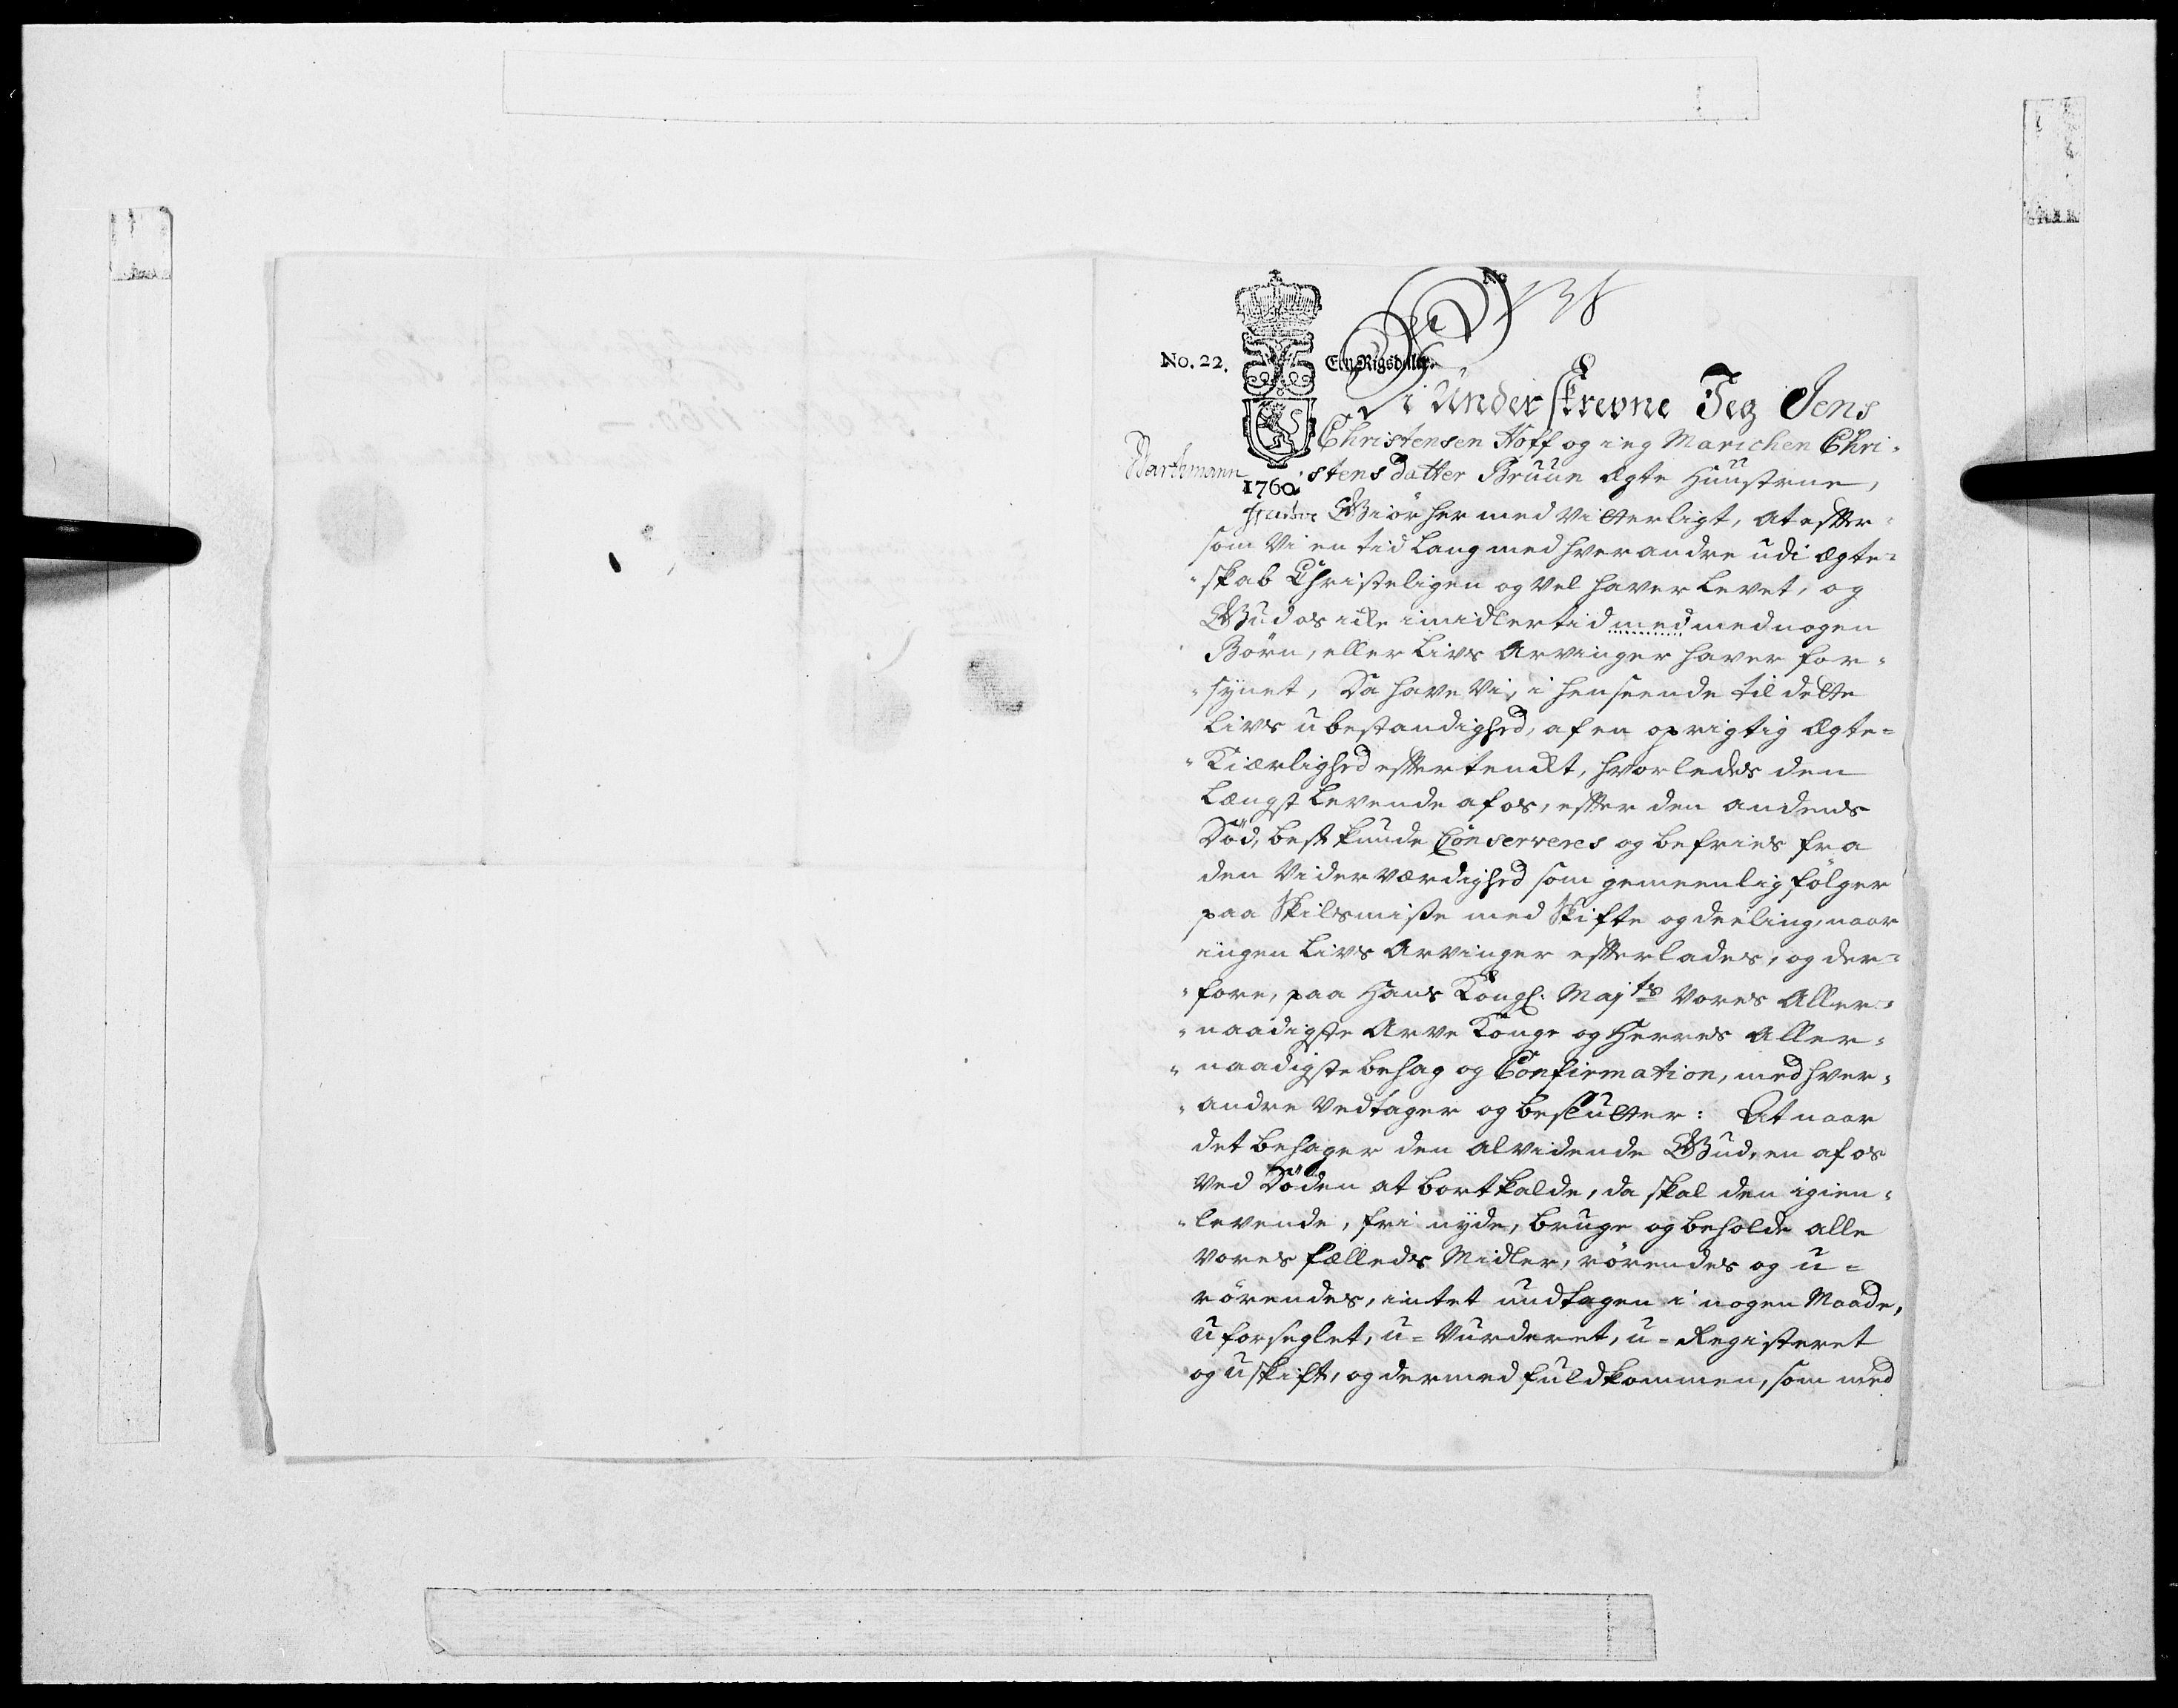 No. 138
No. 22. Een Rigsdaler.
Vi Underskrevne Jeg Jens
Christensen Hoff og ieg Marichen Chri-
stensdatter Bruun Ægte Huustrue,
1760.
Giör her med Vitterligt, at efter-
som Vi en tid lang med hverandre udi Ægte-
skab Christeligen og vel haver levet, og
Gud os icke imidlertid med med nogen
Börn, eller Livs Arvinger haver for-
synet, Da have Vi, i henseende til dette
Livs ubestandighed, af en oprigtig Ægte-
Kiærlighed eftertenckt, hvorledes den
Længst Levende af os, efter den andens
Död, best kunde Conserveres og befries fra
den Viderværdighed som gemeenlig fölger
paa Skilsmisse med Skifte og deeling, naar
ingen Livs Arvinger efterlades, og der-
fore, paa Hans Kongl. Majts Vores Aller-
naadigste Arve Konge og Herres Aller-
naadigste behag og Confirmation, med hver-
andre Vedtager og beslutter: At naar
det behager den alvidende Gud, en af os
ved Döden at bortkalde, da skal den igien-
levende, fri nyde, bruge og beholde alle
vores fælleds Midler, rörendes og u-
rörendes, intet undtagen i nogen Maade,
uforseglet, u-Vurderet, u-Registeret
og uskift, og dermed fuldkommen, som med